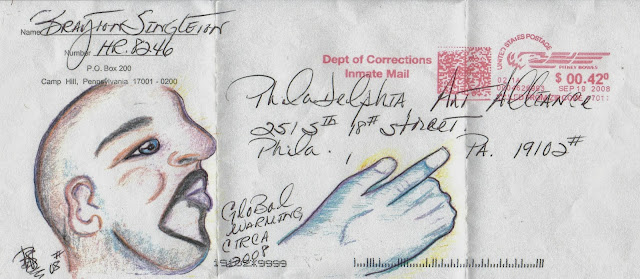 Name BRAYTION SINGLETION
Number HR.8246
P.O. Box 200
Camp Hill, Pennsylvania 17001 - 0200
Dept of Corrections
Inmate Mail
UNITED STATES POSTAGE
PITNEY BOWES
02 1A
$ 00.42⁰
SEP 19 2008
PhilaDelphia Art Alliance
251 S 18th Street.
Phila. , PA. 19102#
GLOBAL
WARMING
CIRCA
2008